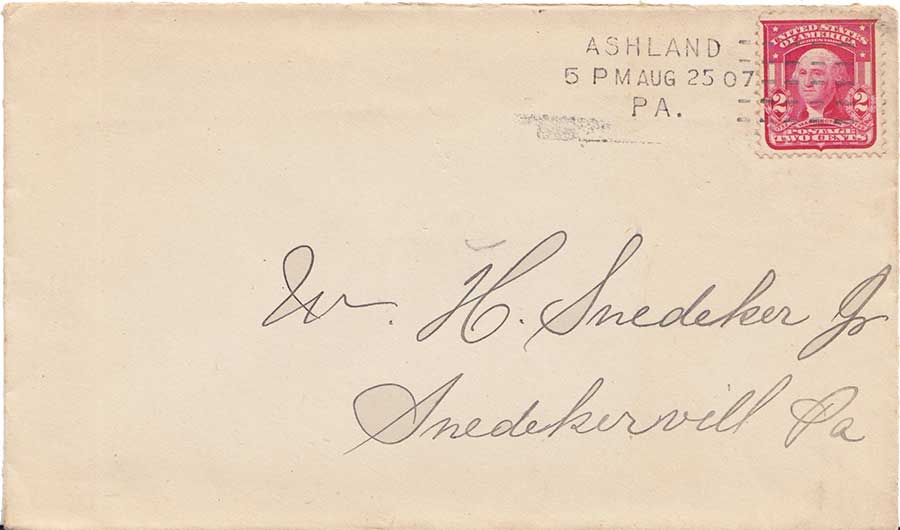 ASHLAND
5 PM AUG 25 07
PA.
UNITED STATES
OF AMERICA
2 2
POSTAGE
TWO CENTS
W. H. Snedeker Jr
Snedekervill Pa